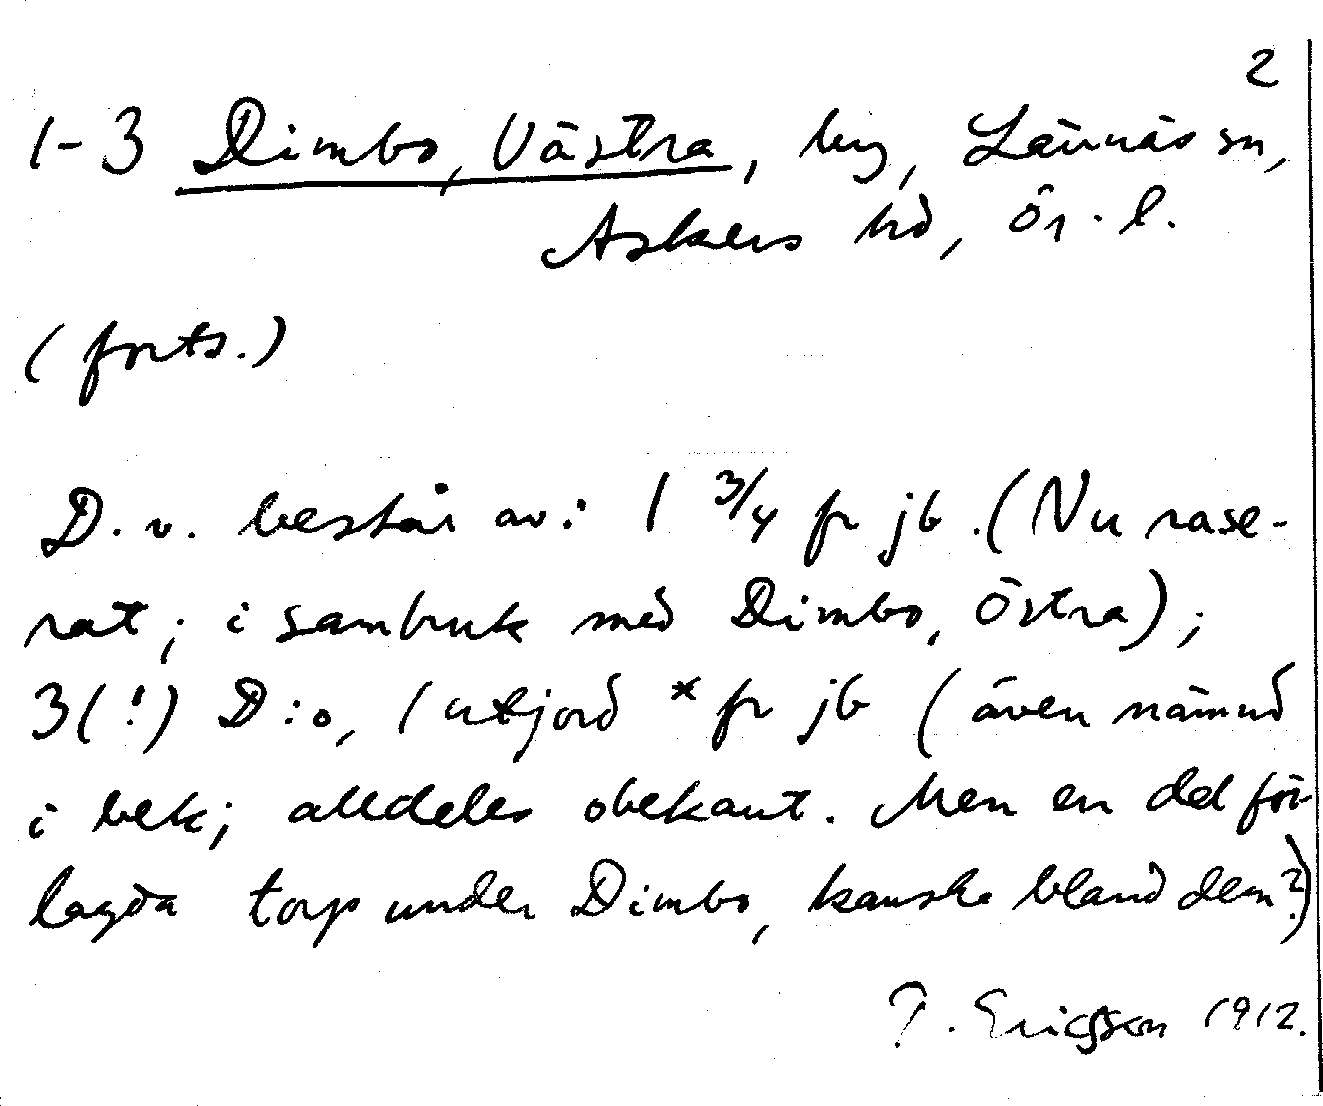 2
1-3 Dimbo, Västra, by, Lännäs sn,
Askers hd, Ör. l.
(forts.)
D. v. består av: 1 3/4 fr jb. (Nu rase-
rat; i sambruk med Dimbo, Östra);
3(!) D:o, 1 utjord * fr jb (även nämnd
i bek; alldeles obekant. Men en del för-
lagda torp under Dimbo, kanske bland dem?)
T. Ericsson 1912.